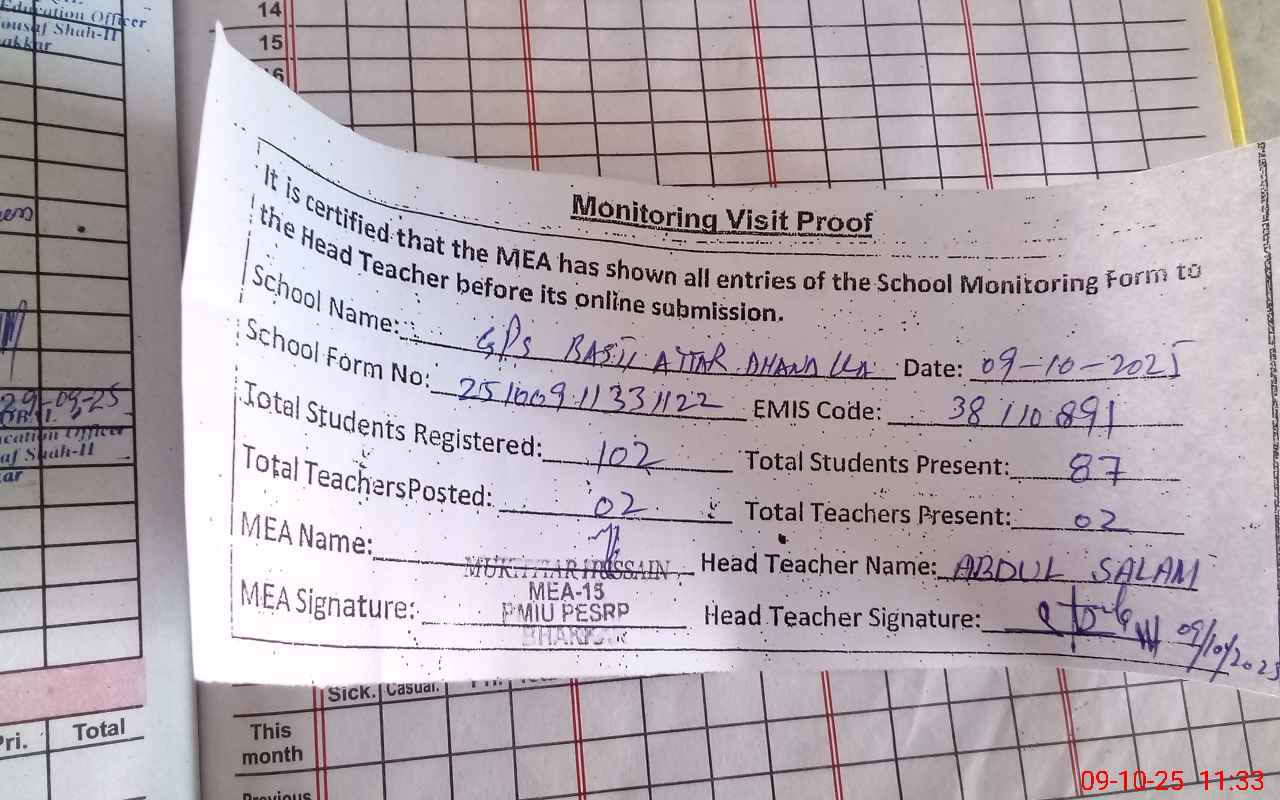 Education Officer
ousaf Shah-II
akkar
14
15
16
Monitoring Visit Proof
It is certified that the MEA has shown all entries of the School Monitoring Form to
the Head Teacher before its online submission.
School Name: GPS BASTI ATTAR DHANDLLA Date: 09-10-2025
School Form No: 25100911331122 EMIS Code: 38110891
Total Students Registered: 102 Total Students Present: 87
Total TeachersPosted: 02 Total Teachers Present: 02
MEA Name: MUKHTIAR HUSSAIN Head Teacher Name: ABDUL SALAM
MEA-15
MEA Signature: PMIU PESRP Head Teacher Signature: 09/10/2025
BHAKKAR
29-09-25
cation Officer
af Shah-II
ar
Sick. Casual.
This
month
Previous
Pri. Total
09-10-25 11:33